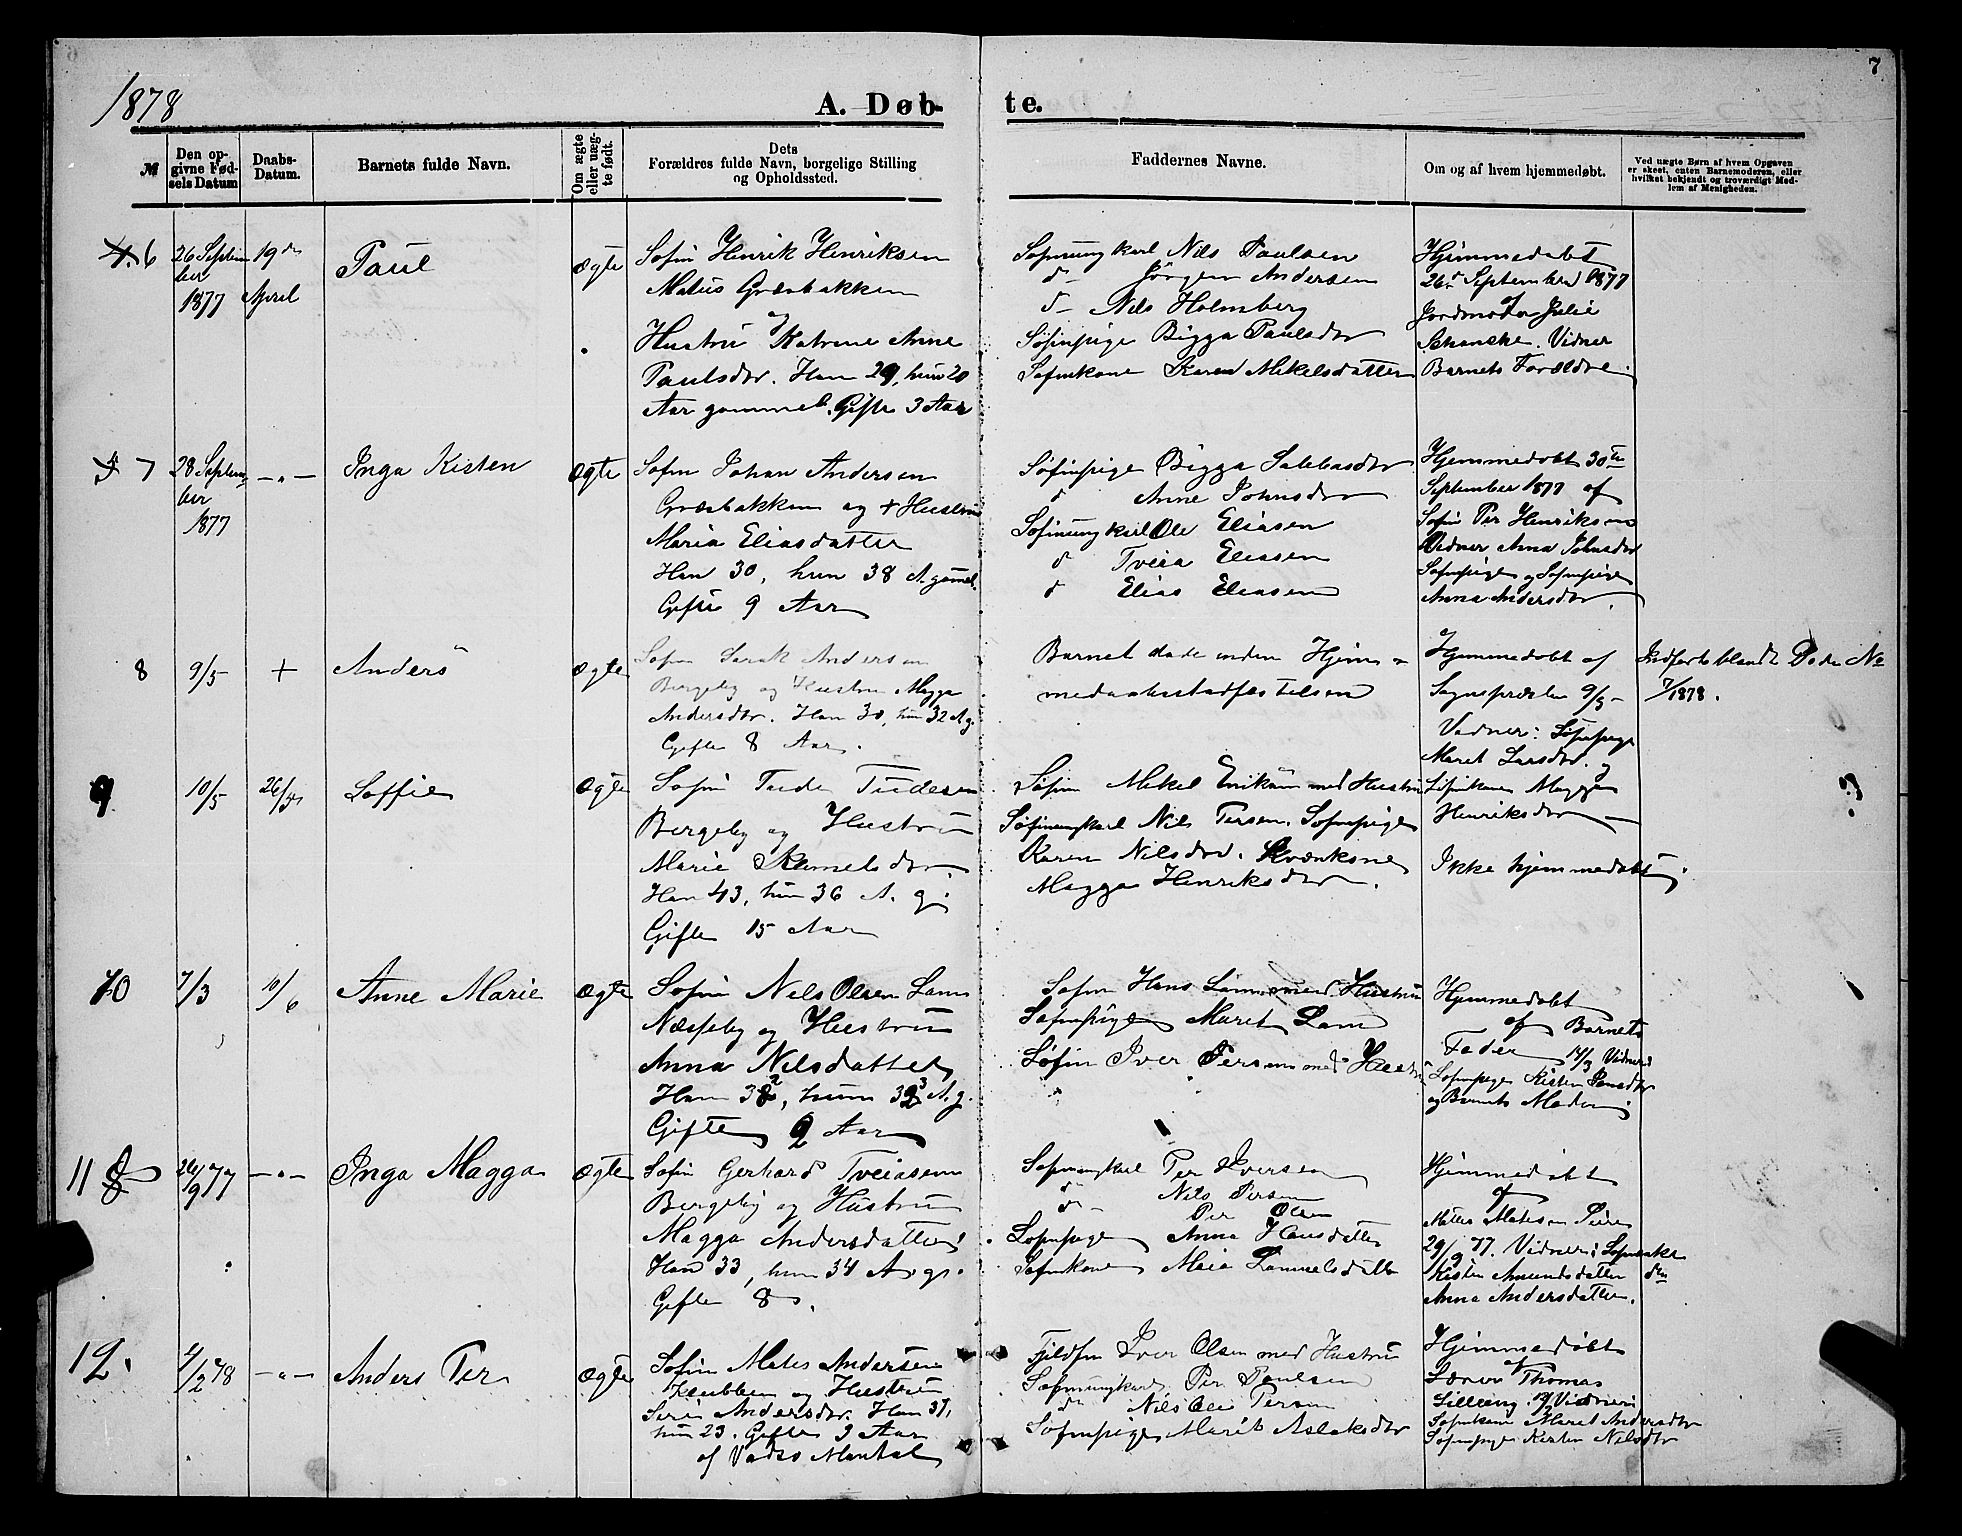 7
1878
A. Døb-
te.
№
Den op-
givne Fød-
sels Datum
Daabs-
Datum.
Barnets fulde Navn.
Om ægte
eller uæg-
te født.
Dets
Forældres fulde Navn, borgelige Stilling
og Opholdssted.
Faddernes Navne.
Om og af hvem hjemmedøbt.
Ved uægte Børn af hvem Opgaven
er skeet, enten Barnemoderen, eller
hvilket bekjendt og troværdigt Med-
lem af Menigheden.
6
26 Septem
ber
1877
19de
April
Paul
ægte
Søfin Henrik Henriksen
Matus Græsbakken
og
Hustru Katrine Anne
Paulsdtr. Han 29, hun 20
Aar gammel. Gifte 3 Aar
Søfinungkarl Nils Paulsen
d- Jørgen Andersen
d- Nils Holmberg
Søfinpige Bigga Paulsdtr
Søfinkone Karen Mikelsdatter
Hjemmedøbt
26de September 1877
af
Jordmoder Julie
Schancke. Vidner
Barnets Forældre
7
28 Septem
ber
1877
-"-
Inga Kisten
ægte
Søfin Johan Andersen
Græsbakken og + Hustru
Maria Eliasdatter
Han 30, hun 38 A. gamel.
Gifte 9 Aar
Søfinpige Bigga Sabbasdtr
d Anne Johnsdtr
Søfinungkarl Ole Eliasen
d Tveia Eliasen
d Elias Eliasen
Hjemmedøbt 30te
September 1877 af
Søfin Per Henriksen
Vidner Anna Johnsdtr
Søfinpige og Søfinpige
Anna Andersdtr.
8
9/5
+
Anders
ægte
Søfin Sarak Andersen
Bergeby og Hustru Magga
Andersdtr. Han 30, hun 32 A. g.
Gifte 8 Aar.
Barnet døde inden Hjem-
medaabsstadfæstelsen
Hjemmedøbt af
Sognepræsten 9/5
Vidner: Søfinpige
Maret Larsdtr. og
Indført blandt Døde No
7/1878.
9
10/5
26/5
Loffie
ægte
Søfin Tude Tudesen
Bergeby og Hustru
Marie Samelsdtr
Han 43, hun 36 A. g.
Gifte 15 Aar
Søfin Mikel Eriksen med Hustru
Søfinungkarl Nils Persen. Søfinpige
Karen Nilsdtr. Kvænkone
Magga Henriksdtr.
Søfinkone Magga
Henriksdtr
Ikke hjemmedøbt.
?
10
7/3
10/6
Anne Marie
ægte
Søfin Nils Olsen Lam
Næsseby og Hustru
Anna Nilsdatter
Han 32, hun 33 A. g.
Gifte 2 Aar
Søfin Hans Lam med Hustru
Søfinpige Maret Lam
Søfin Iver Persen med Hustru
Hjemmedøbt
af Barnets
Fader 14/3 Vidner
Søfinpige Kisten
og Barnets Moder
11
26/9 77
-"-
Inga Magga
ægte
Søfin Gerhard Tveiasen
Bergeby og Hustru
Magga Andersdatter
Han 33, hun 34 A. g.
Gifte 8
Søfinungkarl Per Iversen
d- Nils Persen
d- Per Olsen
Søfinpige Anna Hansdatter
Søfinkone Maia Sammelsdatter
Hjemmedøbt
af
Mattis Matisen
29/9 77. Vidner: Søfinenke
Kisten Amundsdatter den
Anna Andersdatter.
12.
4/2 78
-"-
Anders Per
ægte
Søfin Mates Andersen
Klubben og Hustru
Siri Andersdtr. Han 37,
hun 23. Gifte 3 Aar
af Vadsø Mantal
Fjeldfin Iver Olsen med Hustru
Søfinungkarl Per Paulsen
d- Nils Ole Persen
Søfinpige Marit Aslaksdtr
Hjemmedøbt
af
Lærer Thomas
Vidner
Søfinkone Maret Andersdtr
Søfinpige Kirsten Nilsdtr